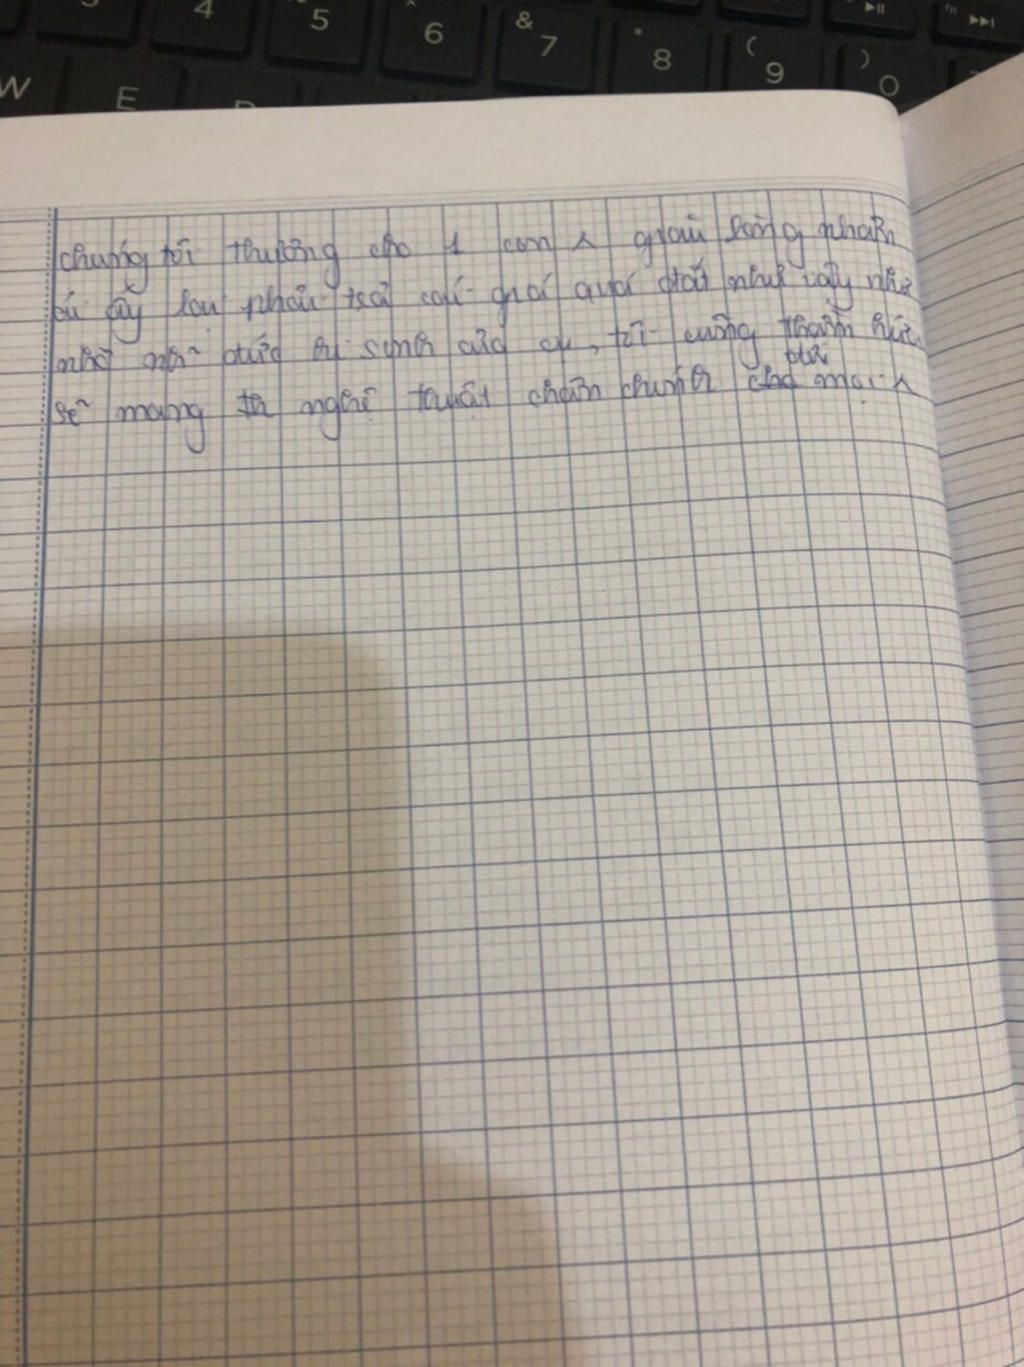 4 5 & 6 7 * 8 ( 9 ) 0
W E
chúng tôi thường cho 1 con λ giàu lòng nhân
ái ấy lau phải trả cái giá quá đắt như vậy nhờ
nhờ nh~ đức hi sinh của cụ, tôi cũng thành
đời
sẽ mang th nghệ thuật chân chính cho mọi λ